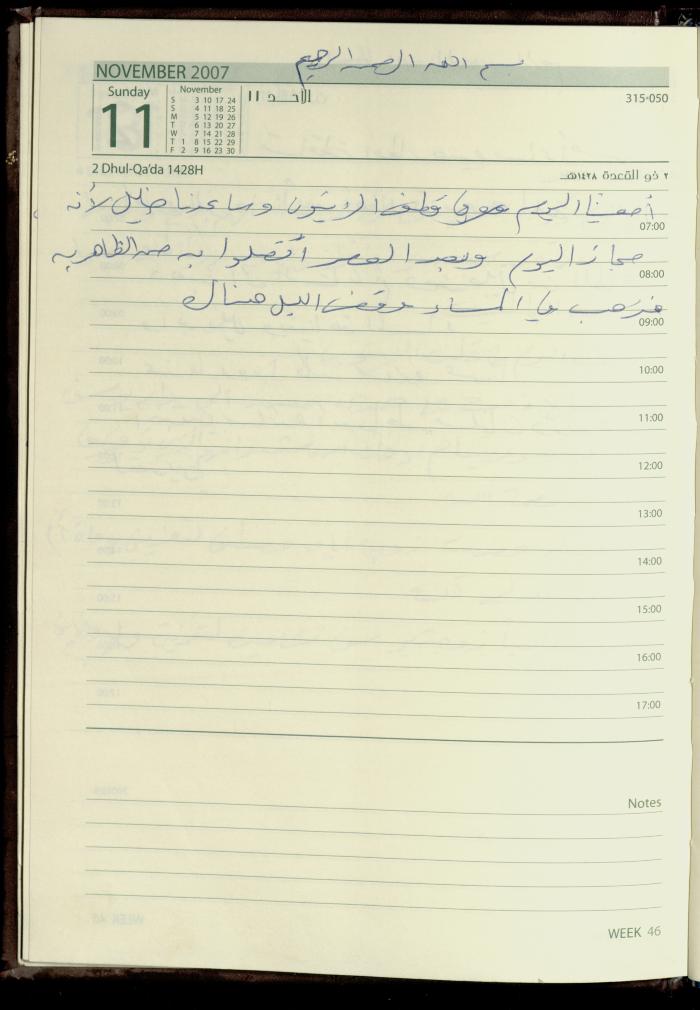 بسم الله الرحمن الرحيم
NOVEMBER 2007
Sunday
11
November
S 3 10 17 24
S 4 11 18 25
M 5 12 19 26
T 6 13 20 27
W 7 14 21 28
T 1 8 15 22 29
F 2 9 16 23 30
الأحد 11
315-050
2 Dhul-Qa'da 1428H
٢ ذو القعدة ١٤٢٨هـ
أمضينا اليوم في قطف الزيتون وساعدنا خليل لأنه
07:00
مجاز اليوم وبعد العصر أتصلوا به من الظاهرية
08:00
فذهب في المساء وقضى اليل هناك
09:00
10:00
11:00
12:00
13:00
14:00
15:00
16:00
17:00
Notes
WEEK 46